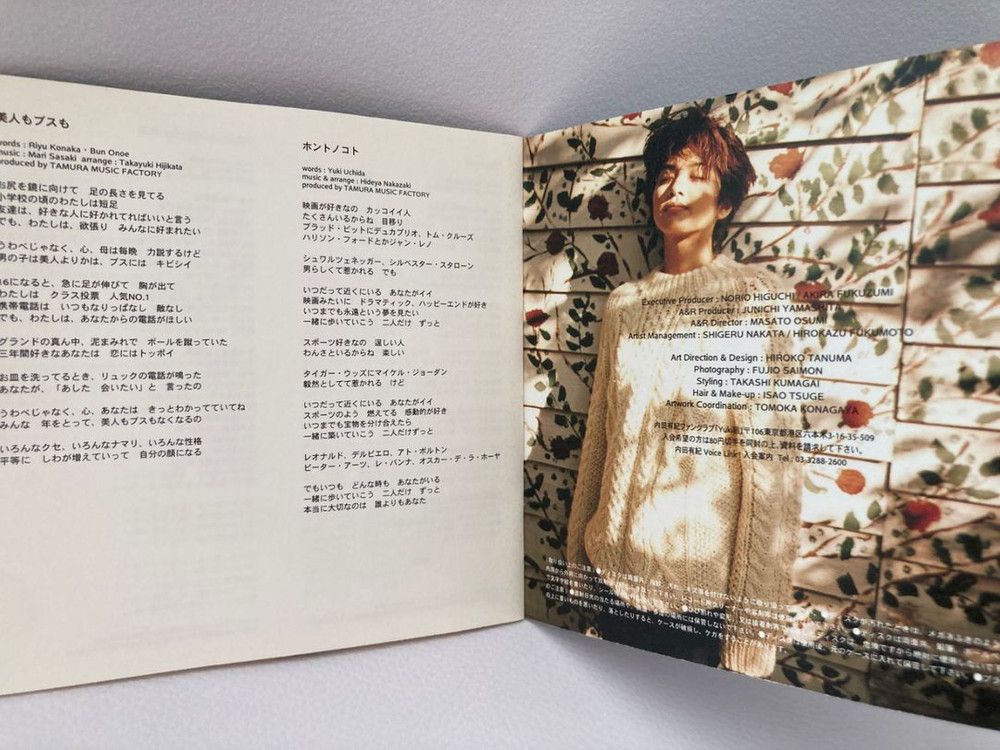 美人もブスも
words : Riyu Konaka・Bun Onoe
music : Mari Sasaki arrange : Takayuki Hijikata
produced by TAMURA MUSIC FACTORY
お尻を鏡に向けて 足の長さを見てる
小学校の頃のわたしは短足
友達は、好きな人に好かれてればいいと言う
でも、わたしは、欲張り みんなに好まれたい
うわべじゃなく、心、母は毎晩 力説するけど
男の子は美人よりかは、ブスには キビシイ
16になると、急に足が伸びて 胸が出て
わたしは クラス投票 人気NO.1
携帯電話は いつもなりっぱなし 敵なし
でも、わたしは、あなたからの電話がほしい
グランドの真ん中、泥まみれで ボールを蹴っていた
三年間好きなあなたは 恋にはトッポイ
お皿を洗ってるとき、リュックの電話が鳴った
あなたが、「あした 会いたい」と 言ったの
うわべじゃなく、心、あなたは きっとわかってていてね
みんな 年をとって、美人もブスもなくなるの
いろんなクセ、いろんなナマリ、いろんな性格
平等に しわが増えていって 自分の顔になる
ホントノコト
words : Yuki Uchida
music & arrange : Hideya Nakazaki
produced by TAMURA MUSIC FACTORY
映画が好きなの カッコイイ人
たくさんいるからね 目移り
ブラッド・ピットにデュカプリオ、トム・クルーズ
ハリソン・フォードとかジャン・レノ
シュワルツェネッガー、シルベスター・スタローン
男らしくて惹かれる でも
いつだって近くにいる あなたがイイ
映画みたいに ドラマティック、ハッピーエンドが好き
いつまでも永遠という夢を見たい
一緒に歩いていこう 二人だけ ずっと
スポーツ好きなの 逞しい人
わんさといるからね 楽しい
タイガー・ウッズにマイケル・ジョーダン
毅然としてて惹かれる けど
いつだって近くにいる あなたがイイ
スポーツのよう 燃えてる 感動的が好き
いつまでも宝物を分け合えたら
一緒に築いていこう 二人だけずっと
レオナルド、デルピエロ、アト・ボルトン
ピーター・アーツ、レ・バンナ、オスカー・デ・ラ・ホーヤ
でもいつも どんな時も あなたがいる
一緒に歩いていこう 二人だけ ずっと
本当に大切なのは 誰よりもあなた
Executive Producer : NORIO HIGUCHI / AKIRA FUKUZUMI
A&R Producer : JUNICHI YAMASHITA
A&R Director : MASATO OSUMI
Artist Management : SHIGERU NAKATA / HIROKAZU FUKUMOTO
Art Direction & Design : HIROKO TANUMA
Photography : FUJIO SAIMON
Styling : TAKASHI KUMAGAI
Hair & Make-up : ISAO TSUGE
Artwork Coordination : TOMOKA KONAGAYA
内田有紀ファンクラブ「Yuki園」〒106東京都港区六本木3-16-35-509
入会希望の方は80円切手を同封の上、資料を請求して下さい。
内田有紀 Voice Link! 入会案内 Tel : 03-3288-2600